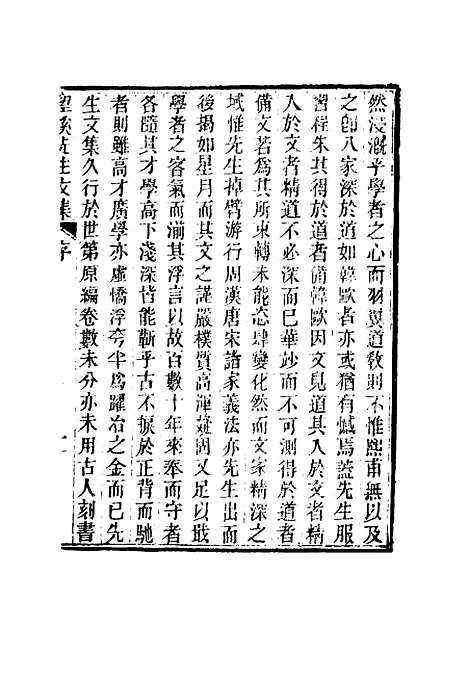 然浸漑乎學者之心而羽翼道敎則不惟熙甫無以及
之卽八家深於道如韓歐者亦或猶有憾焉蓋先生服
習程朱其得於道者備韓歐因文見道其入於文者精
入於文者精道不必深而已華妙而不可測得於道者
備文若爲其所束轉未能恣肆變化然而文家精深之
域惟先生掉臂游行周漢唐宋諸家義法亦先生出而
後揭如星月而其文之謹嚴樸質高渾凝固又足以戢
學者之客氣而湔其浮言以故百數十年來奉而守者
各隨其才學高下淺深皆能蘄乎古不搌於正背而馳
者則雖高才廣學亦虛憍浮夸半爲躍冶之金而已先
生文集久行於世第原編卷數未分亦未用古人刻書
望溪先生文集
序
二